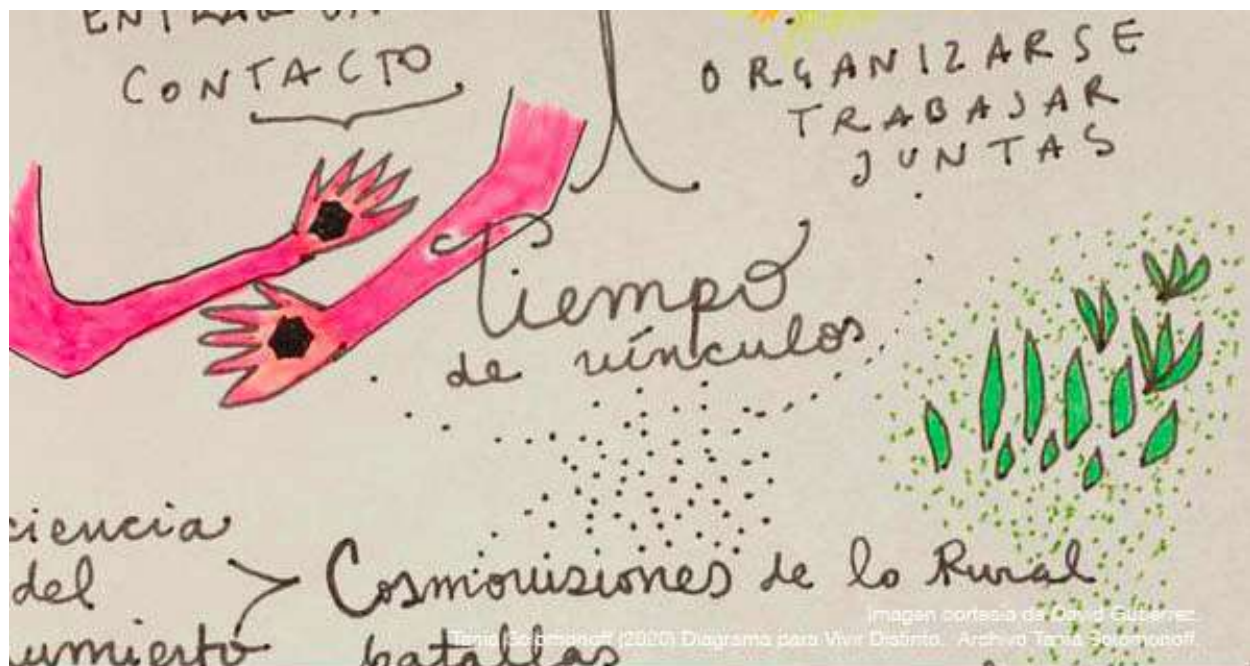 CONTACTO
ORGANIZARSE
TRABAJAR
JUNTAS
Tiempo
de vínculos
ciencia
del
Cosmovisiones de lo Rural
batallas
Imagen cortesía de David Gutiérrez.
Tania Solomonoff (2020) Diagrama para Vivir Distinto. Archivo Tania Solomonoff.